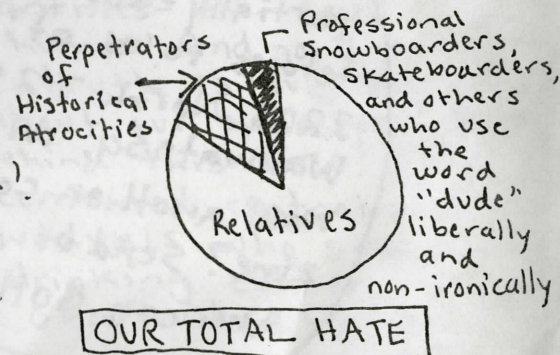 Perpetrators
of
Historical
Atrocities
Professional
Snowboarders,
Skateboarders,
and others
who use
the
word
"dude"
liberally
and
non-ironically
).
Relatives
OUR TOTAL HATE